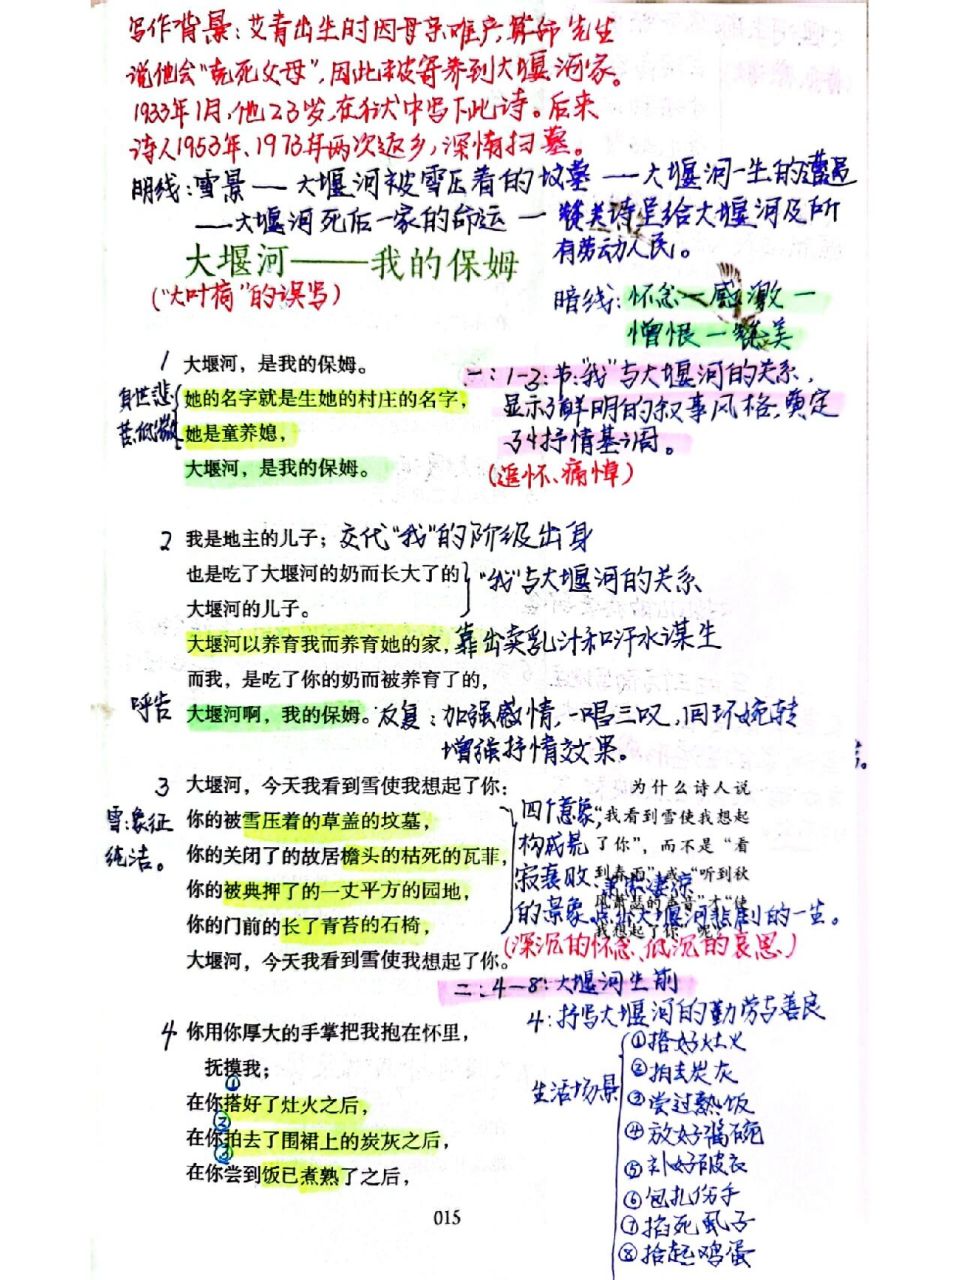 写作背景：艾青出生时因母亲难产，算命先生
说他会“克死父母”，因此被寄养到大堰河家。
1933年1月，他23岁，在狱中写下此诗。后来
诗人1953年、1973年两次返乡，深情扫墓。
明线：雪景—大堰河被雪压着的坟墓—大堰河一生的遭遇
—大堰河死后一家的命运—赞美诗呈给大堰河及所
有劳动人民。
大堰河——我的保姆
（“大叶荷”的误写）
暗线：怀念—感激—
憎恨—赞美
1 大堰河，是我的保姆。
一：1-3：节：“我”与大堰河的关系，
身世悲
她的名字就是生她的村庄的名字，
显示了鲜明的叙事风格，奠定
苦，低微
她是童养媳，
了抒情基调。
大堰河，是我的保姆。
（追怀、痛悼）
2 我是地主的儿子；交代“我”的阶级出身
也是吃了大堰河的奶而长大了的
“我”与大堰河的关系
大堰河的儿子。
大堰河以养育我而养育她的家，靠出卖乳汁和汗水谋生
而我，是吃了你的奶而被养育了的，
呼告 大堰河啊，我的保姆。反复：加强感情，一唱三叹，回环婉转
增强抒情效果。
3 大堰河，今天我看到雪使我想起了你：
为什么诗人说
雪：象征
你的被雪压着的草盖的坟墓，
四个意象，
“我看到雪使我想起
纯洁。
你的关闭了的故居檐头的枯死的瓦菲，
构成荒
了你”，而不是“看
你的被典押了的一丈平方的园地，
寂衰败、萧条凄凉
到春雨”或“听到秋
你的门前的长了青苔的石椅，
的景象。点出大堰河悲剧的一生。
风萧瑟的声音”才“使
我想起了你”呢？
大堰河，今天我看到雪使我想起了你。
（深沉的怀念、低沉的哀思）
二：4-8：大堰河生前
4：抒写大堰河的勤劳与善良
4 你用你厚大的手掌把我抱在怀里，
抚摸我；
① 
在你搭好了灶火之后，
②
在你拍去了围裙上的炭灰之后，
③
在你尝到饭已煮熟了之后，
生活场景
①搭好灶火
②拍去炭灰
③尝过熟饭
④放好酱碗
⑤补好破衣
⑥包扎伤手
⑦掐死虱子
⑧拾起鸡蛋
015